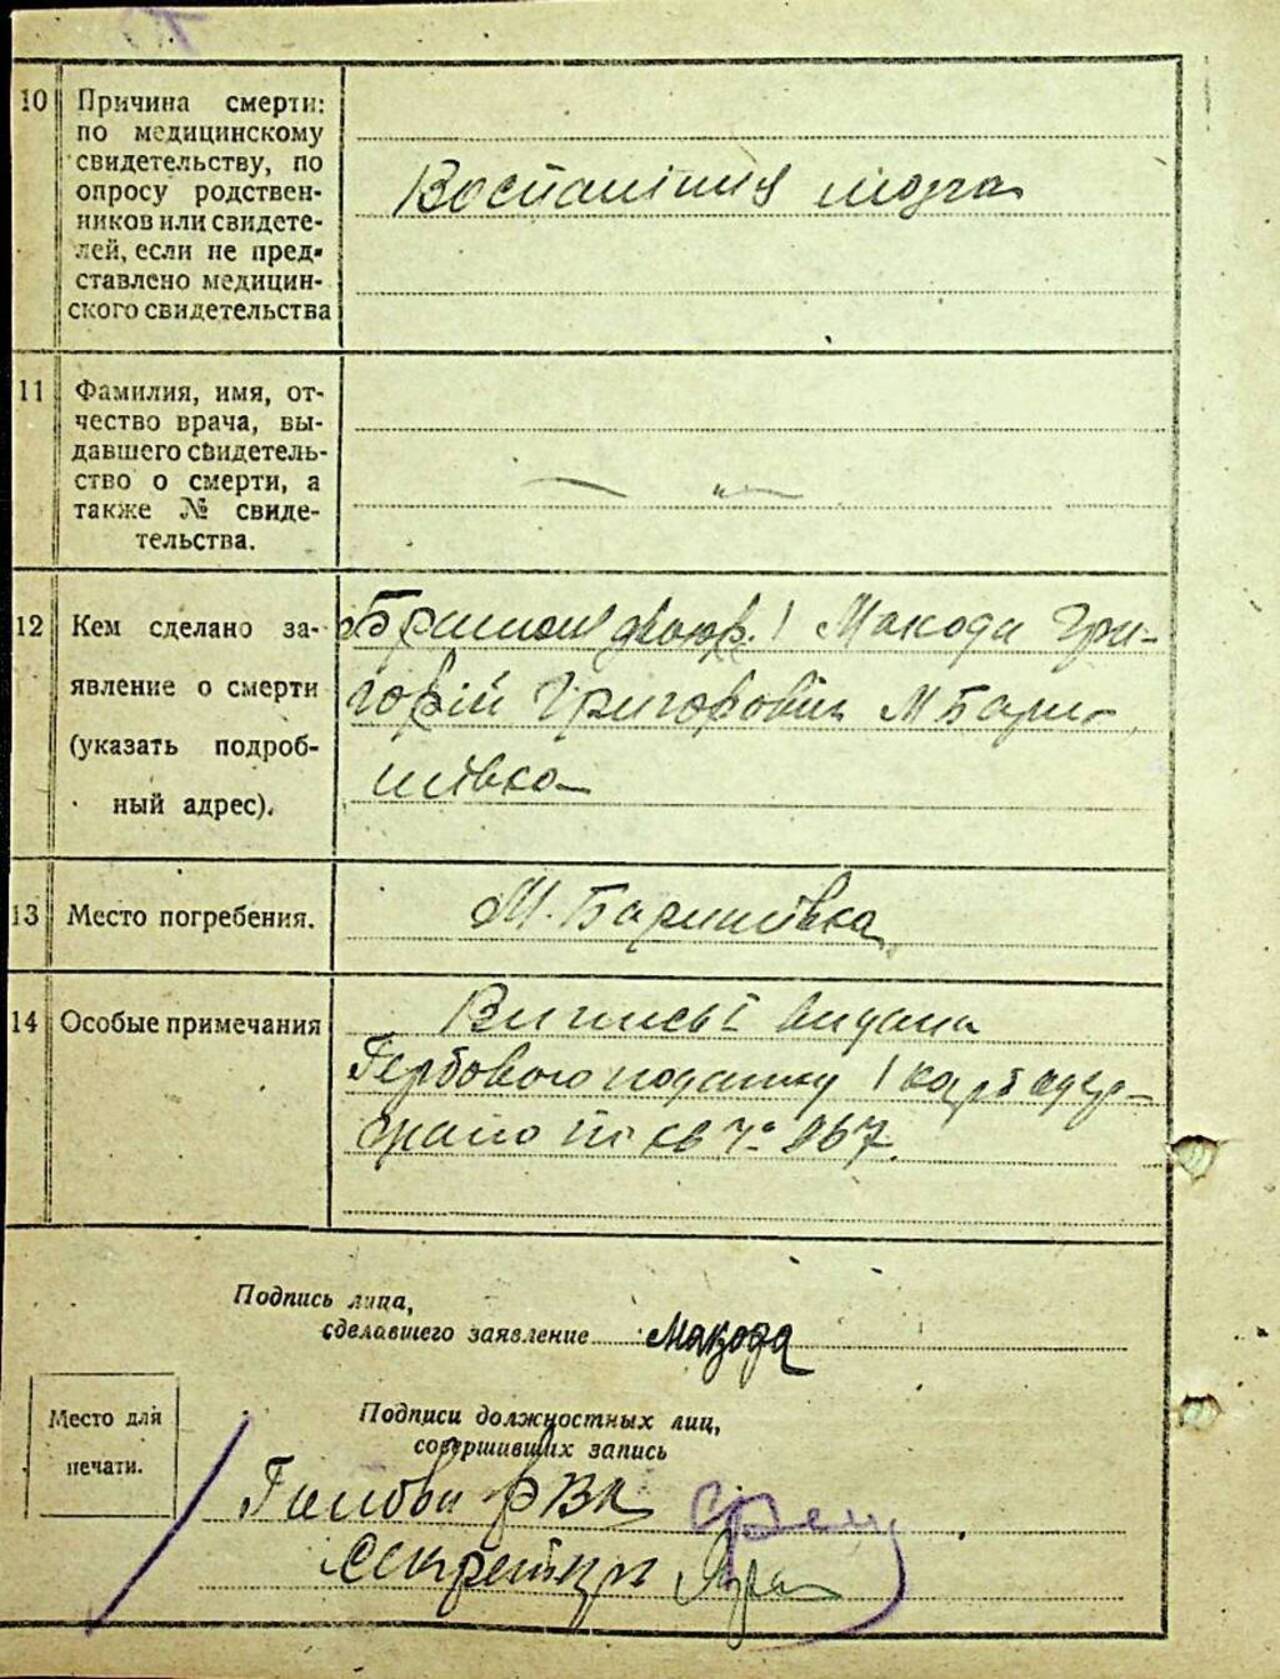 10 Причина смерти:
по медицинскому
свидетельству, по
опросу родствен-
ников или свидете-
лей, если не пред-
ставлено медицин-
ского свидетельства
Воспаліния мозга
11 Фамилия, имя, от-
чество врача, вы-
давшего свидетель-
ство о смерти, а
также № свиде-
тельства.
— " —
12 Кем сделано за-
явление о смерти
(указать подроб-
ный адрес).
Макода Гри-
горій Григорович М Бари-
шівка
13 Место погребения.
М. Баришівка
14 Особые примечания
Виписы видана
Гербового податку 1 карб одер-
жано по кв № 267.
Подпись лица,
сделавшего заявление Макода
Место для
печати.
Подписи должностных лиц,
совершивших запись
Голова РВК
Секретарь